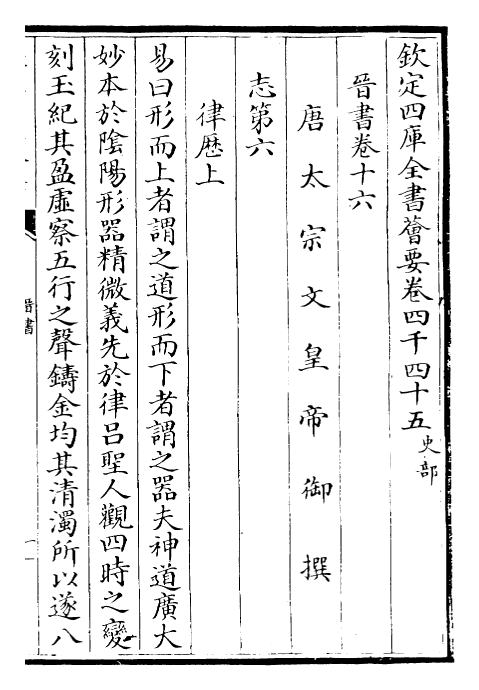 欽定四庫全書薈要卷四千四十五史部
晉書卷十六
唐太宗文皇帝御撰
志第六
律厯上
易曰形而上者謂之道形而下者謂之器夫神道廣大
妙本於陰陽形器精微義先於律吕聖人觀四時之變
刻玉紀其盈虛察五行之聲鑄金均其清濁所以遂八
晉書